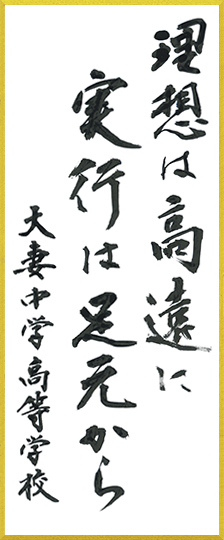 理想は高遠に
実行は足元から
大妻中学高等学校